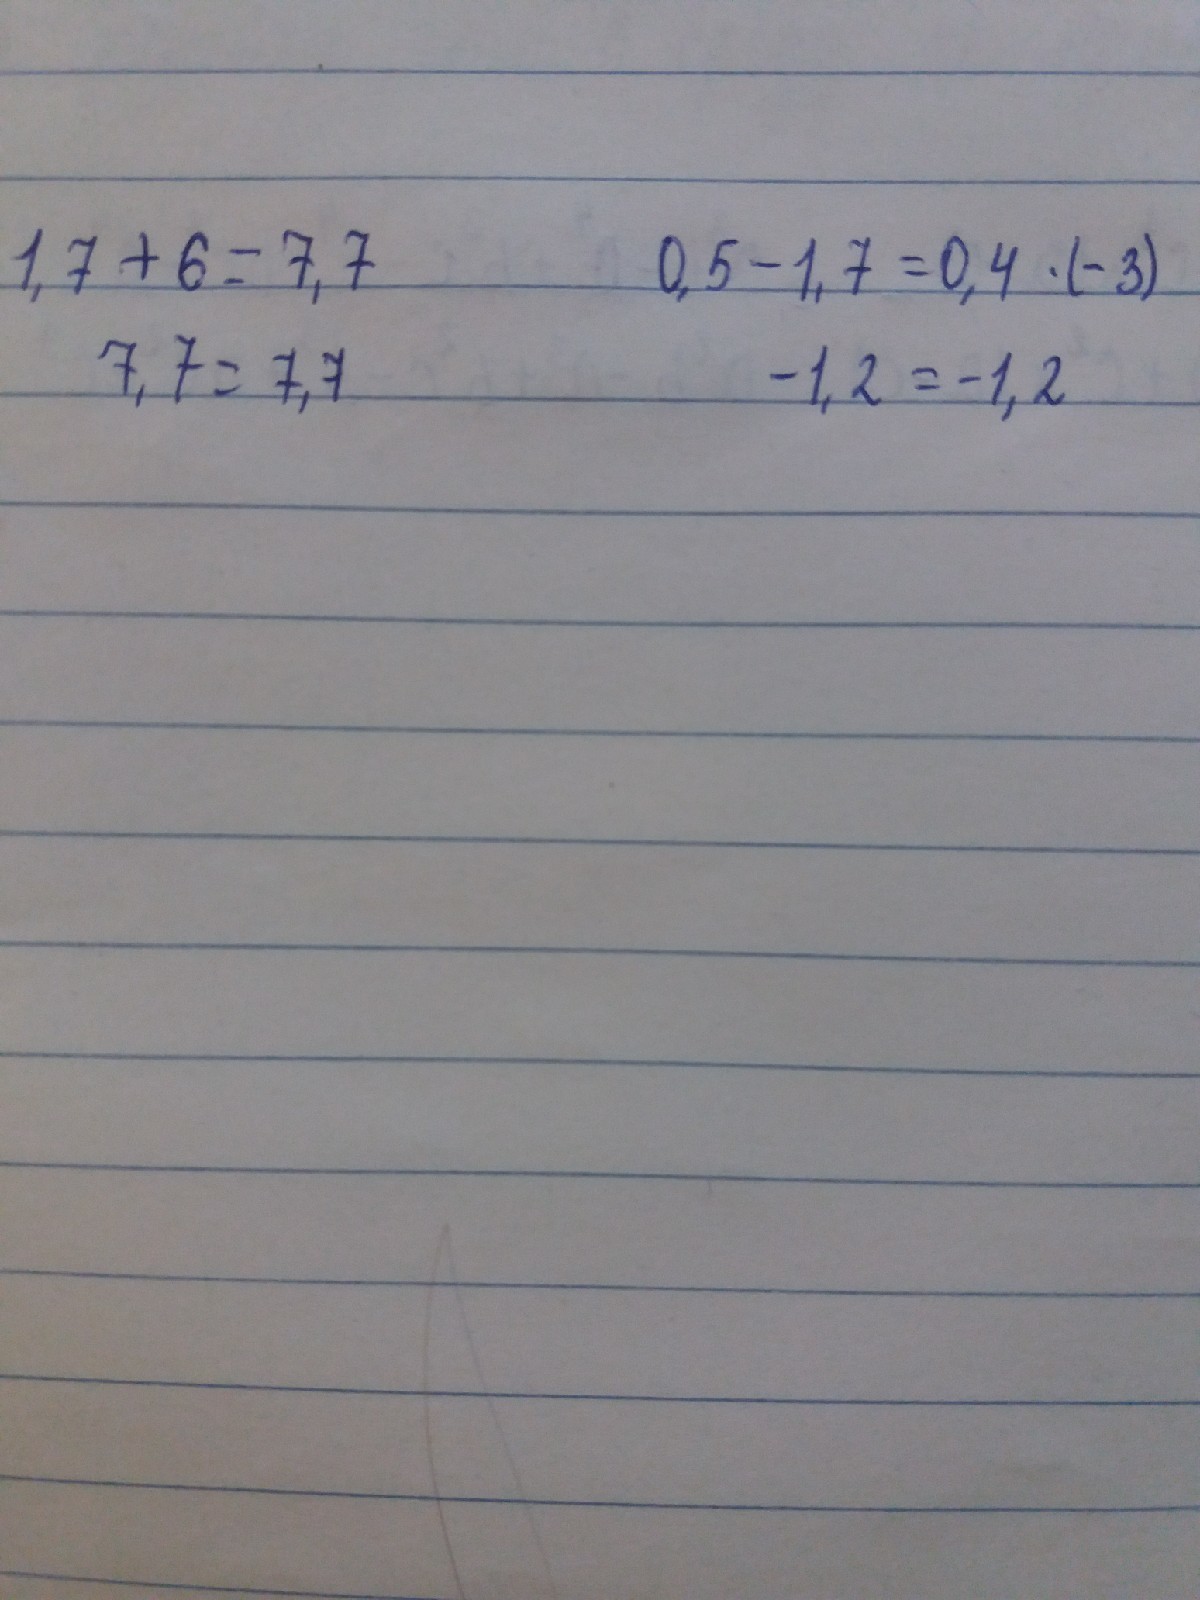 1,7 + 6 = 7,7
7,7 = 7,7
0,5 - 1,7 = 0,4 · (-3)
-1,2 = -1,2